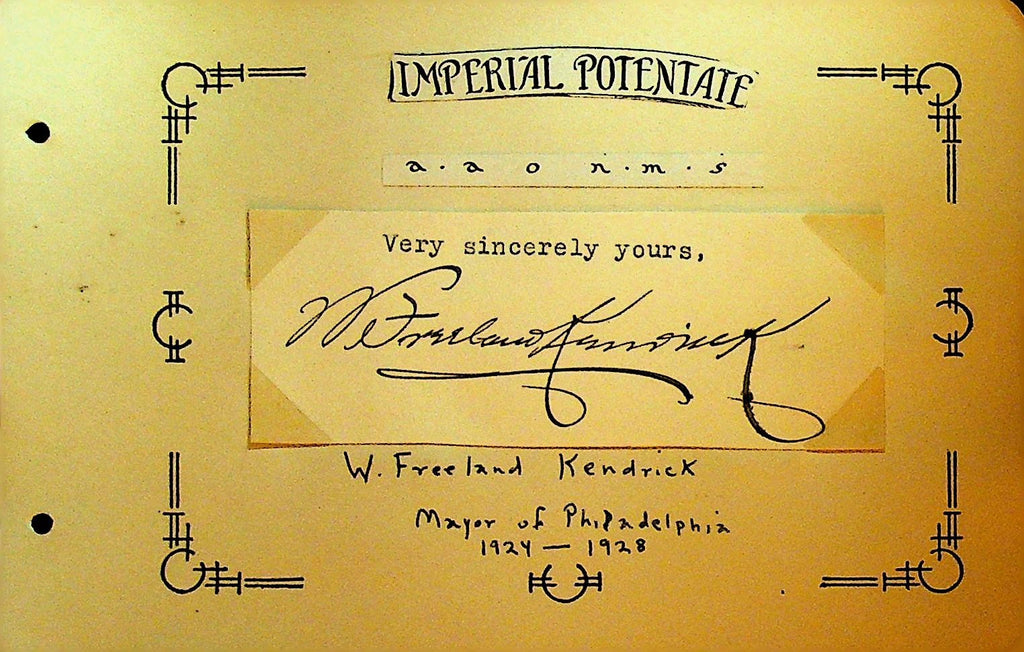 IMPERIAL POTENTATE
a·a o n·m·s
Very sincerely yours,
W Freeland Kendrick
W. Freeland Kendrick
Mayor of Philadelphia
1924 — 1928